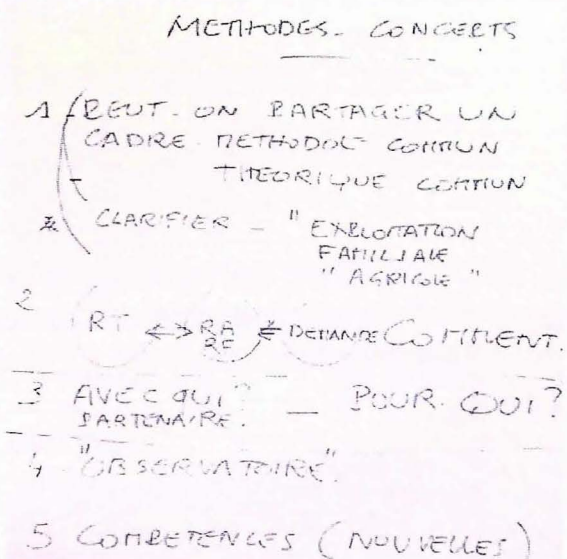 METHODES - CONCEPTS
1 PEUT-ON PARTAGER UN
CADRE METHODOL COMMUN
THEORIQUE COMMUN
CLARIFIER - "EXPLOITATION
FAMILIALE
"AGRICOLE"
2 RT ↔ RA ← DEMANDE COMMENT.
RF
3 AVEC QUI? — POUR QUI?
PARTENAIRE.
4 "OBSERVATOIRE".
5 COMPETENCES (NOUVELLES)